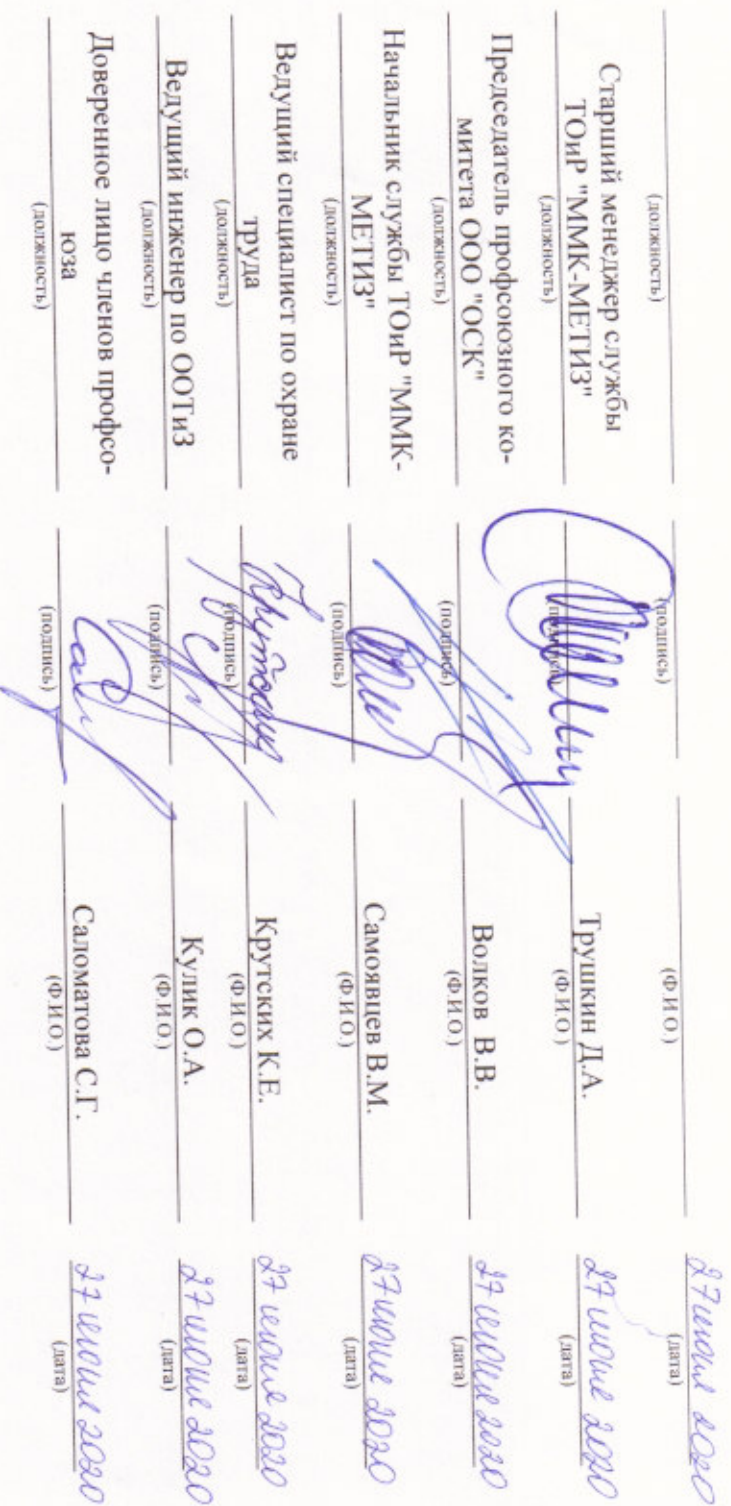 27 июля 2020
(должность) (подпись) (Ф.И.О.) (дата)
Старший менеджер службы
ТОиР "ММК-МЕТИЗ" Трушкин Д.А. 27 июля 2020
(должность) (подпись) (Ф.И.О.) (дата)
Председатель профсоюзного ко-
митета ООО "ОСК" Волков В.В. 27 июля 2020
(должность) (подпись) (Ф.И.О.) (дата)
Начальник службы ТОиР "ММК-
МЕТИЗ" Самоявцев В.М. 27 июля 2020
(должность) (подпись) (Ф.И.О.) (дата)
Ведущий специалист по охране
труда Крутских К.Е. 27 июля 2020
(должность) (подпись) (Ф.И.О.) (дата)
Ведущий инженер по ООТиЗ Кулик О.А. 27 июля 2020
(должность) (подпись) (Ф.И.О.) (дата)
Доверенное лицо членов профсо-
юза Саломатова С.Г. 27 июля 2020
(должность) (подпись) (Ф.И.О.) (дата)